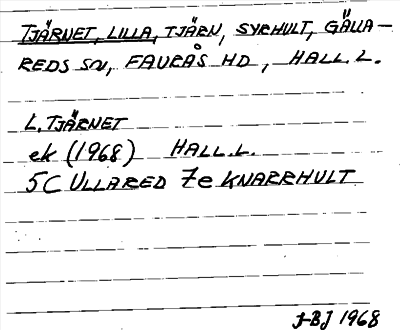 TJÄRNET, LILLA, TJÄRN, SYRHULT, GÄLLA-
REDS SN, FAURÅS HD, HALL. L.
L. TJÄRNET
ek (1968) HALL. L.
5C ULLARED 7e KNARRHULT
J-BJ 1968